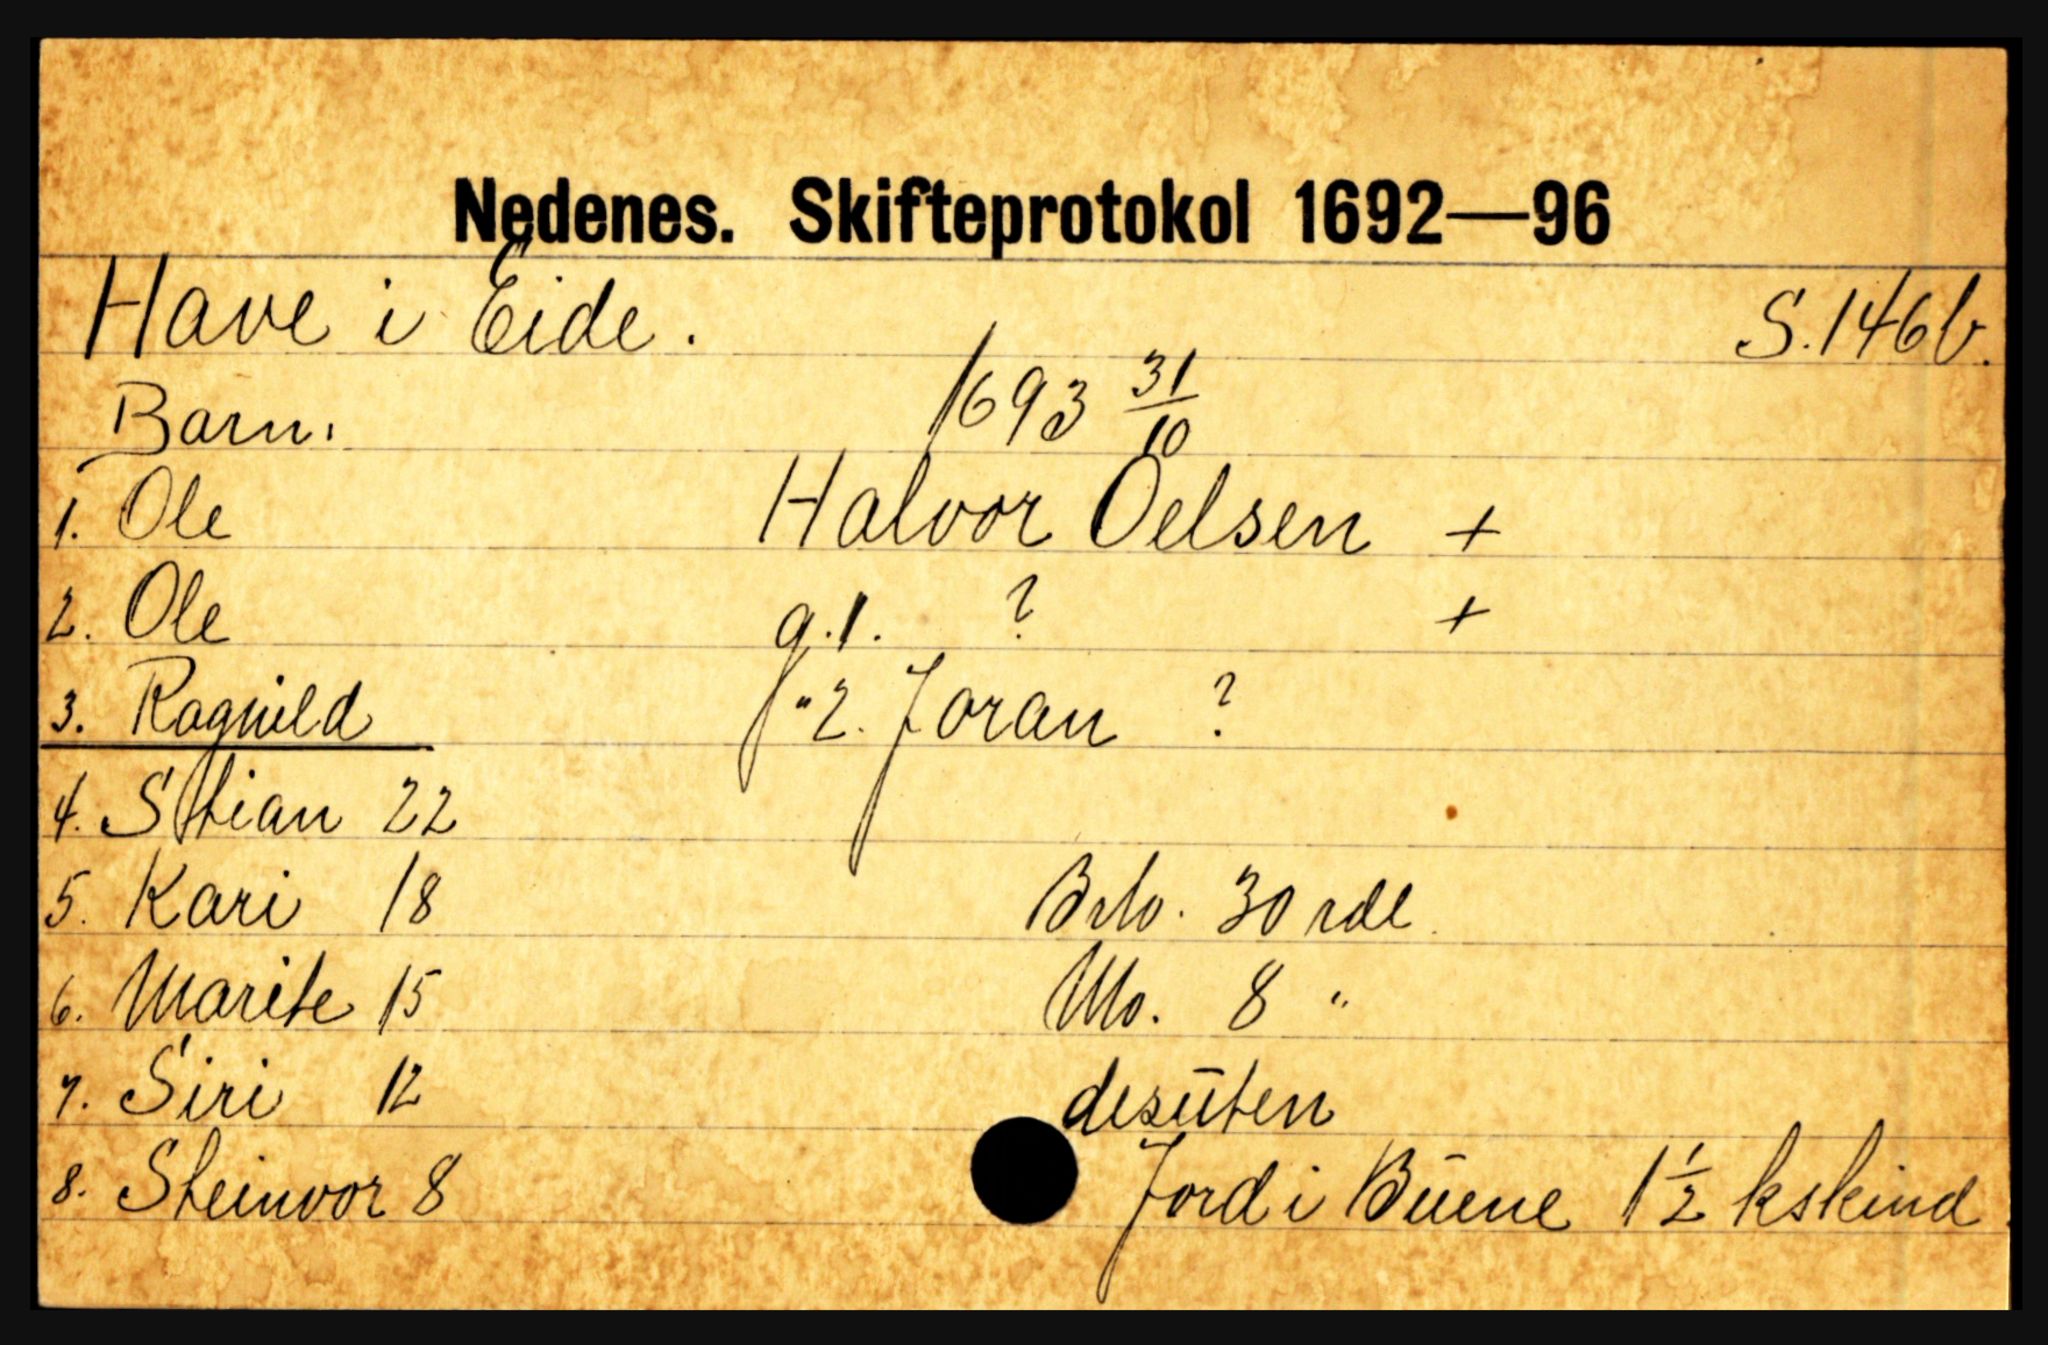 Nedenes. Skifteprotokol 1692—96
Have i Eide. S. 146b.
Barn. 1693 31/10
1. Ole Halvor Oelsen +
2. Ole g. 1. ? +
3. Ragnild " 2. Joran ?
4. Stian 22
5. Kari 18 Brto. 30 rdl.
6. Marite 15 Mo. 8 "
7. Siri 12 desuten
8. Steinvor 8 Jord i Buene 1 1/2 kskind.